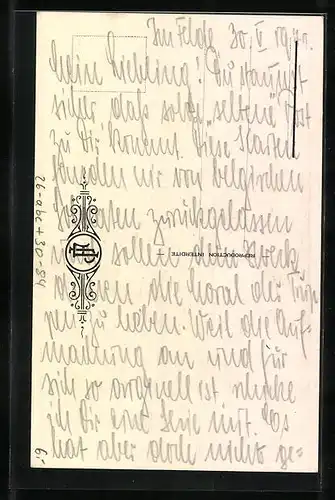 Im Felde 30. V. 1940.
Mein Liebling! Du staunst
sicher daß solch "seltene" Post
zu Dir kommt. Diese Karten
fanden wir von belgischen
Soldaten zurückgelassen
sollen den Zweck
die Moral der Trup-
pen zu heben. Weil die Auf-
machung an und für
sich so originell ist, schicke
ich Dir eine Serie mit. Das
hat aber doch nichts ge-
REPRODUCTION INTERDITE
26-abc+30-84
6.-